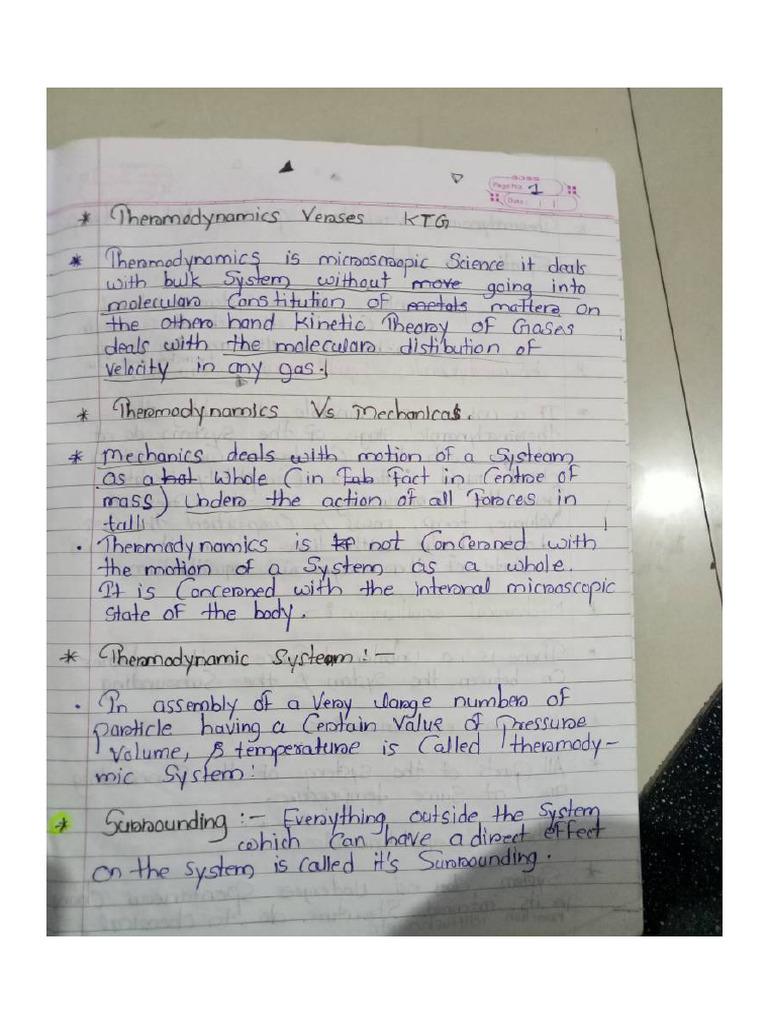 Page No. 1
Date: | |
* Thermodynamics Verses KTG
* Thermodynamics is microscopic Science it deals
with bulk System without move going into
molecular Constitution of metals matters on
the other hand Kinetic Theory of Gases
deals with the molecular distibution of
velocity in any gas.
* Thermodynamics Vs Mechanicas.
* Mechanics deals with motion of a Systeam
as a bot whole (in Fab Fact in Centre of
mass) Under the action of all Forces in
tall
• Thermodynamics is not Concerned with
the motion of a System as a whole.
It is Concerned with the internal microscopic
state of the body.
* Thermodynamic System :-
• In assembly of a Very large number of
particle having a Certain Value of Pressure
Volume, & temperature is Called thermody-
mic System:
* Surrounding :- Everything outside the System
which Can have a direct effect
on the system is called it's Surrounding.